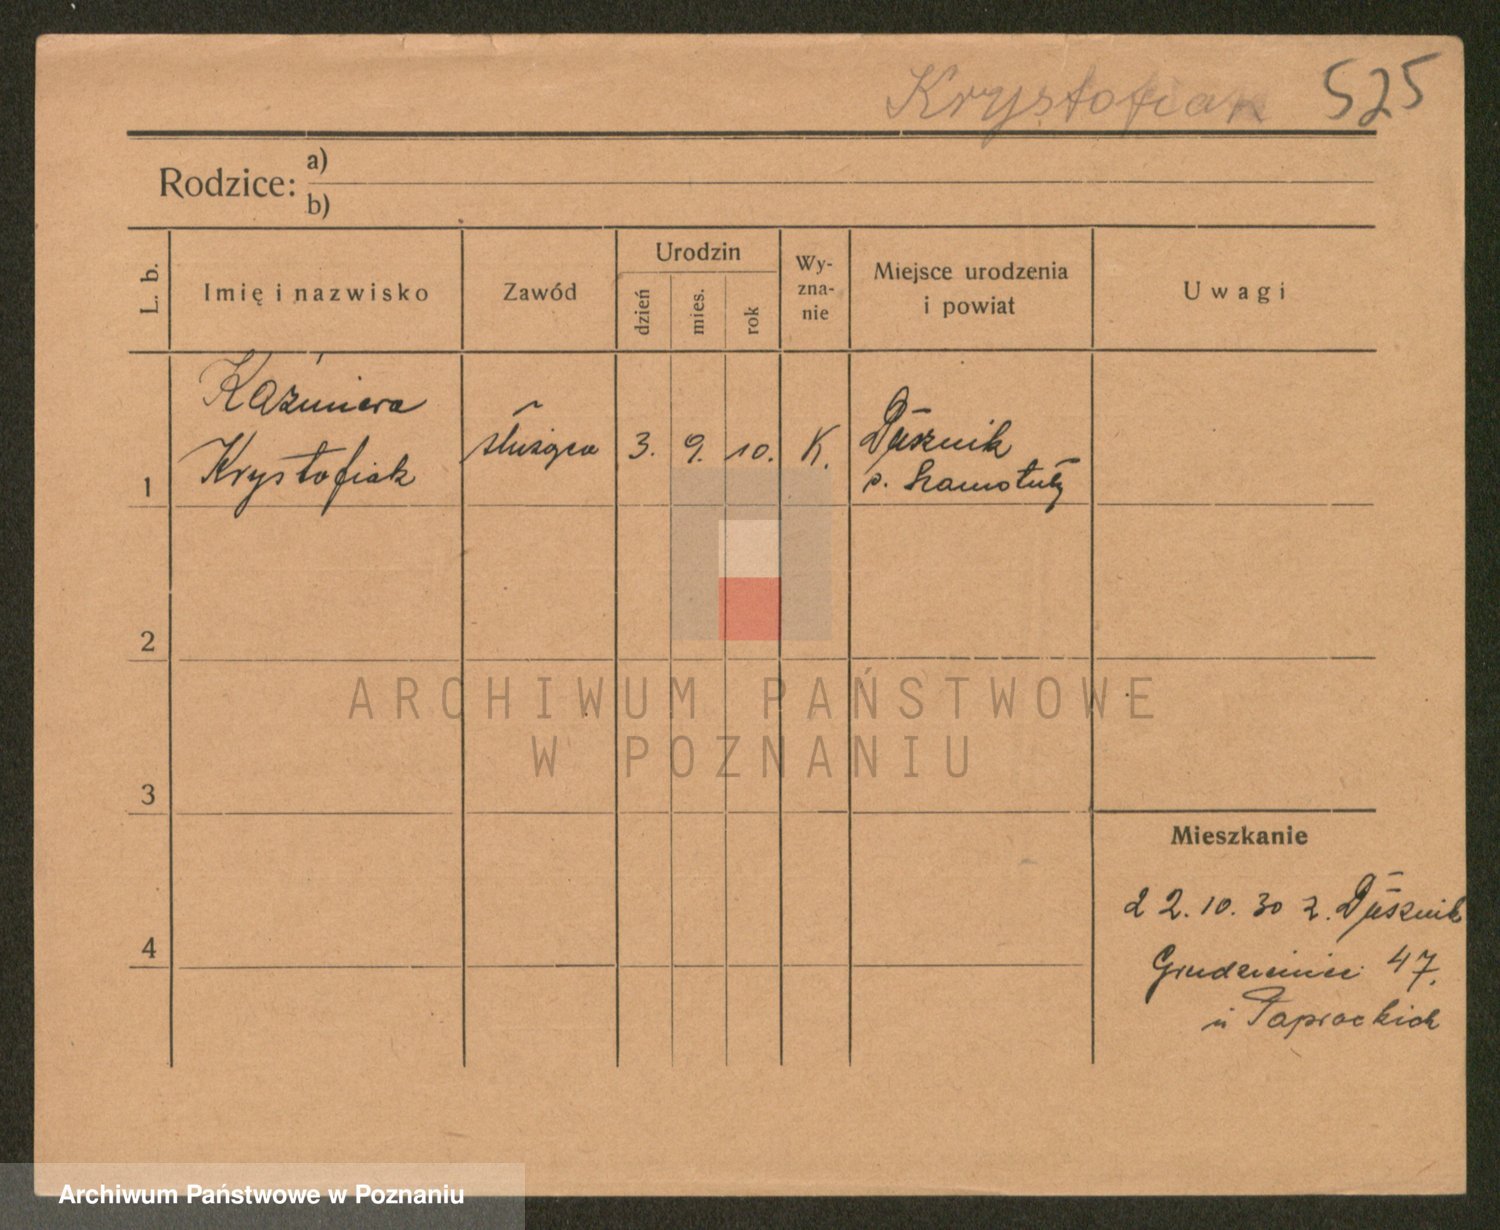 Krystofiak 525
Rodzice: a)
b)
L. b.
Imię i nazwisko
Zawód
Urodzin
dzień
mies.
rok
Wy-
zna-
nie
Miejsce urodzenia
i powiat
Uwagi
Kazimiera
Krystofiak
służąca
3. 9. 10.
K.
Dusznik
p. Szamotuły
1
2
3
4
ARCHIWUM PAŃSTWOWE
W POZNANIU
Mieszkanie
22.10.30 z. Dusznik
Grudzieniec 47.
u Paprockich
Archiwum Państwowe w Poznaniu